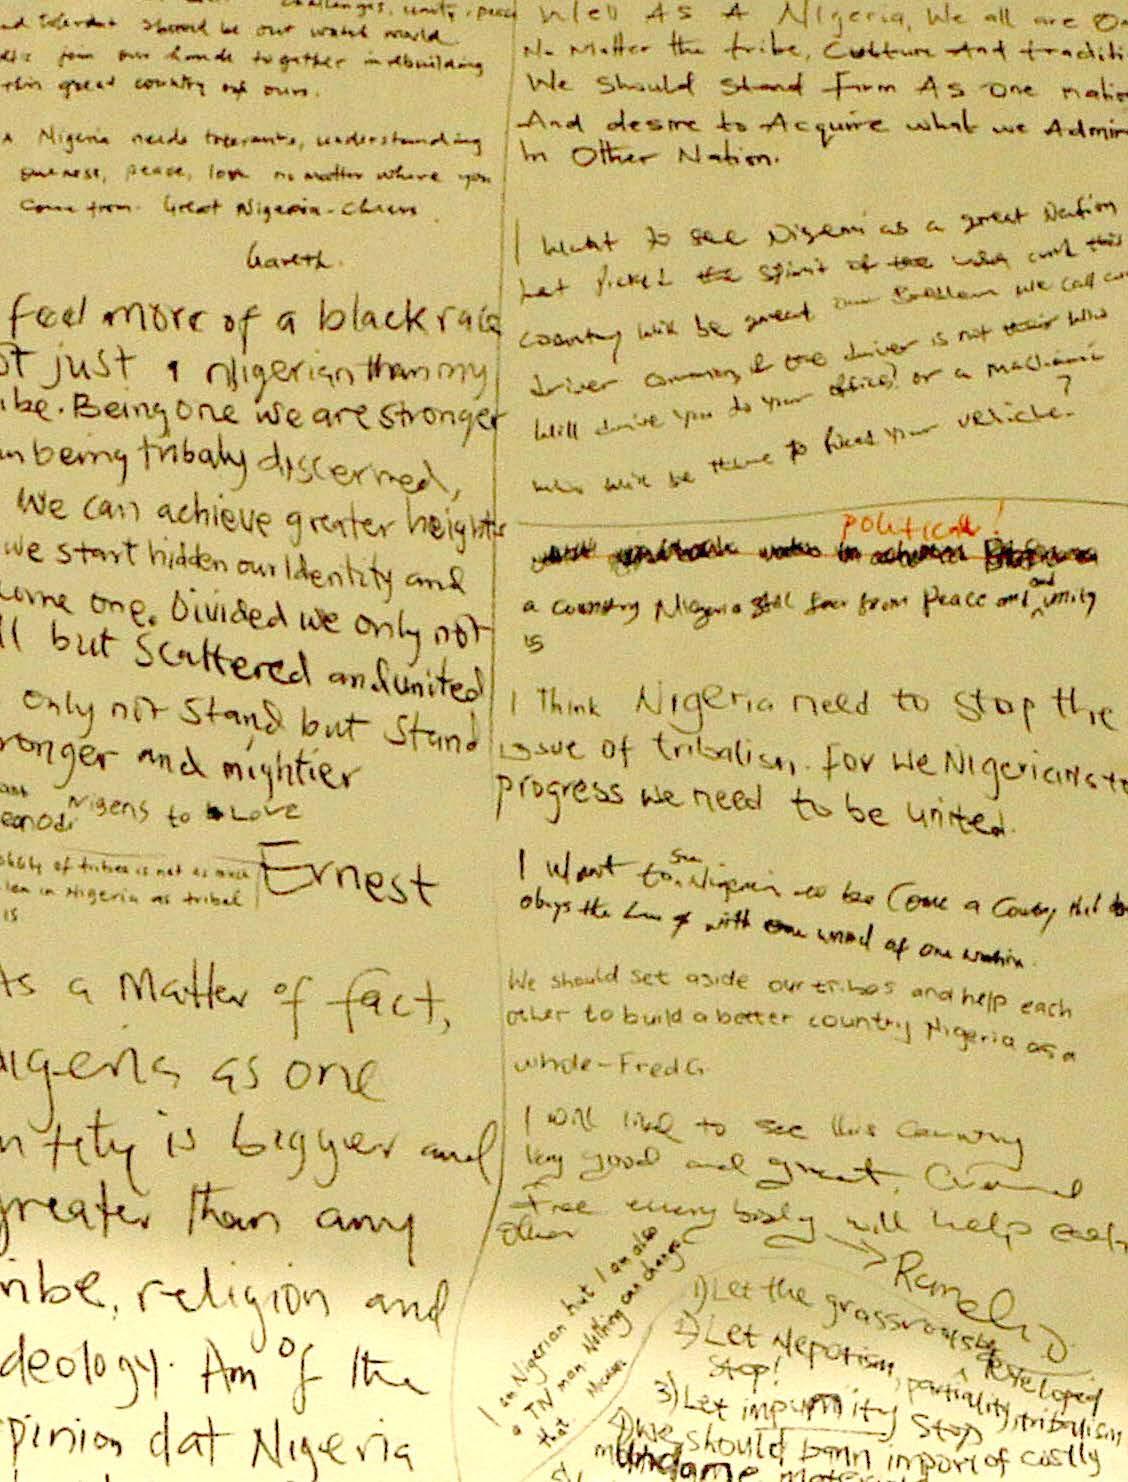 challenges, unity, peace
and should be our watch
join our hands together in rebuilding
this great country of ours.
Nigeria needs understanding
oneness, peace, love no matter where you
come from. Great Nigeria - Cheers.
Gareth.
feel more of a black race
just a Nigerian than my
ibe. Being one we are stronger
being tribaly discerned,
We can achieve greater heights
we start hidden our Identity and
one. Divided we only not
ll but Scattered and united
only not Stand but Stand
ronger and mightier
Nigens to Love
of tribes is not as much
lem in Nigeria as tribal
is
Ernest
As a Matter of fact,
Nigeria as one
ntity is bigger and
greater than any
ribe, religion and
deology. Am of the
pinion dat Nigeria
Well As A Nigeria, We all are On
No Matter the tribe, Culture And traditi
We Should Stand Firm As One natio
And desire to Acquire what we Admir
In Other Nation.
I want to see Nigeria as a great Nation
the Spirit of the
country will be great our Problem we call
driver the driver is not their who
Will drive you to your office? or a
who will be there to your vehicle?
political!
a country Nigeria still far from Peace and unity
is
I Think Nigeria need to Stop the
issue of tribalism. For we Nigerians to
progress we need to be united.
I Want to see Nigeria to be Come a County that
obeys the Law with one of one nation.
We should set aside our tribes and help each
other to build a better country Nigeria as a
whole - Fred G
I will like to see this Country
Very good and great,
Free every body will help each
other
I am Nigerian but I am also
a TN man. Nothing can change
that
1) Let the grassroots be developed
2) Let Nepotism, partiality, tribalism
Stop!
3) Let impunity Stop
4) We should bann import of costly
mundane materials
5)